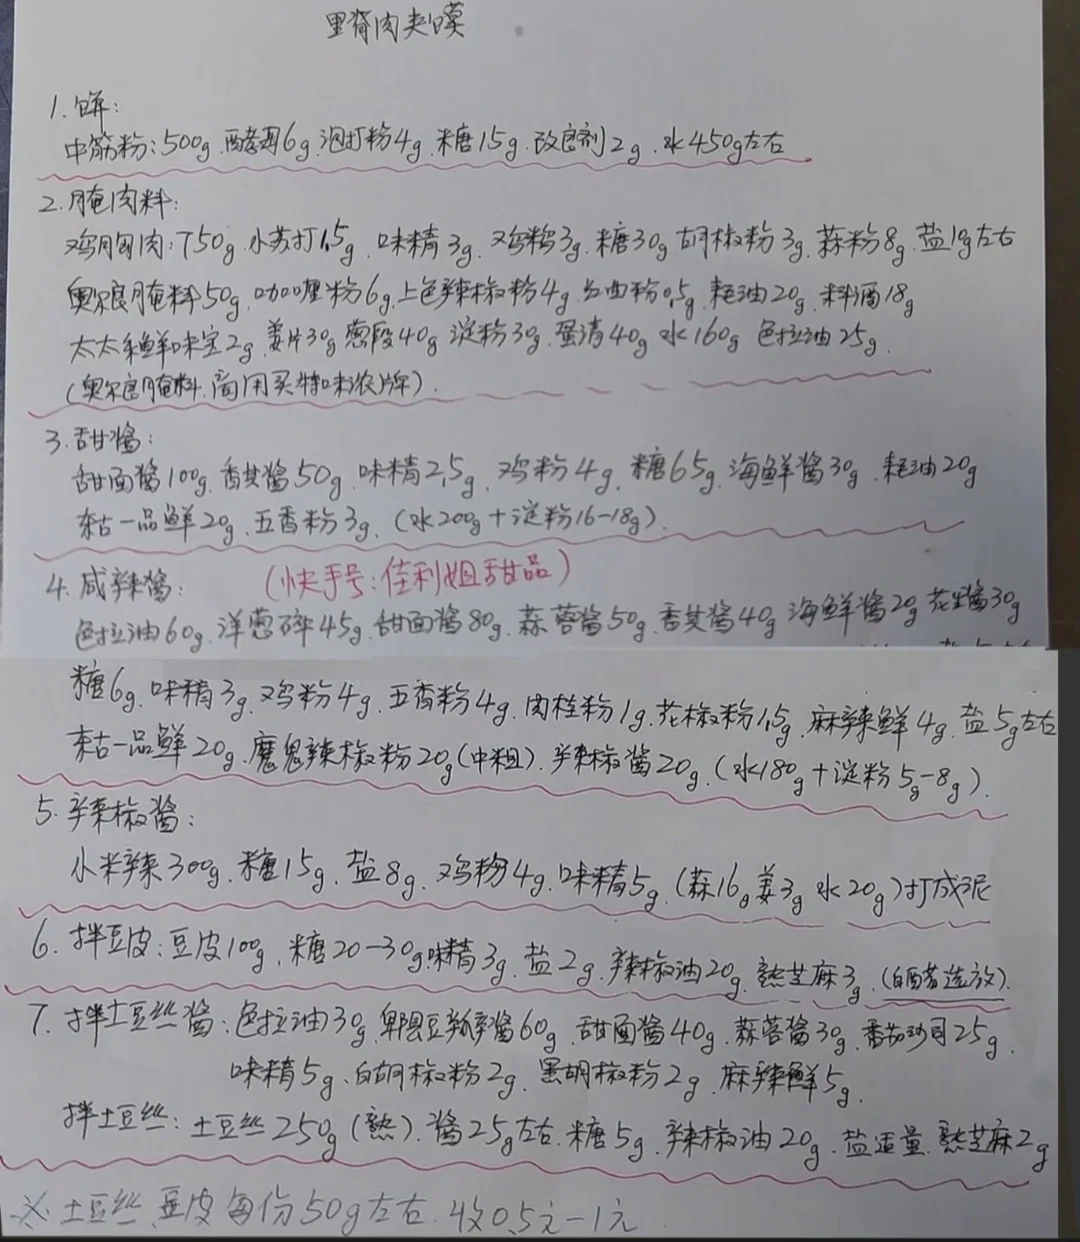 里脊肉夹馍
1.饼:
中筋粉:500g.酵母6g.泡打粉4g.糖15g.改良剂2g.水450g左右
2.腌肉料:
鸡胸肉:750g.小苏打1.5g.味精3g.鸡粉3g.糖30g.胡椒粉3g.蒜粉8g.盐1g左右
奥尔良腌料50g.咖喱粉6g.上色辣椒粉4g.红曲粉0.5g.耗油20g.料酒18g
太太乐鲜味宝2g.姜片30g.葱段40g.淀粉30g.蛋清40g.水160g.色拉油25g.
(奥尔良腌料.商用买特味浓牌).
3.甜酱:
甜面酱100g.香其酱50g.味精2.5g.鸡粉4g.糖65g.海鲜酱30g.耗油20g
东古一品鲜20g.五香粉3g.(水200g+淀粉16-18g).
4.咸辣酱:(快手号:佳利姐甜品)
色拉油60g.洋葱碎45g.甜面酱80g.蒜蓉酱50g.香其酱40g.海鲜酱20g.花生酱30g
糖6g.味精3g.鸡粉4g.五香粉4g.肉桂粉1g.花椒粉1.5g.麻辣鲜4g.盐5g左右
东古一品鲜20g.魔鬼辣椒粉20g(中粗).辣椒酱20g.(水180g+淀粉5g-8g).
5.辣椒酱:
小米辣300g.糖15g.盐8g.鸡粉4g.味精5g.(蒜16g姜3g水20g)打成泥
6.拌豆皮:豆皮100g.糖20-30g.味精3g.盐2g.辣椒油20g.熟芝麻3g.(白醋选放).
7.拌土豆丝酱:色拉油30g.郫县豆瓣酱60g.甜面酱40g.蒜蓉酱30g.番茄沙司25g.
味精5g.白胡椒粉2g.黑胡椒粉2g.麻辣鲜5g.
拌土豆丝:土豆丝250g(熟).酱25g左右.糖5g.辣椒油20g.盐适量.熟芝麻2g
※土豆丝、豆皮每份50g左右.收0.5元-1元